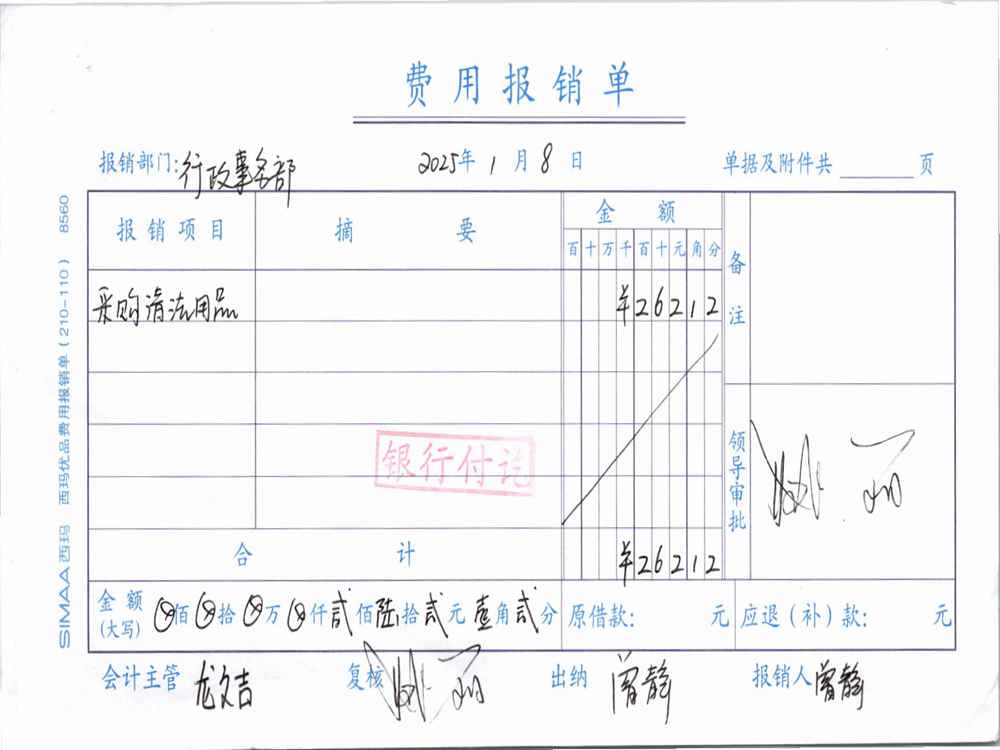 费用报销单
报销部门:行政事务部 2025年1月8日 单据及附件共 页
报销项目 摘要 金额 备注
百十万千百十元角分
采购清洁用品 ¥26212
银行付讫
领导审批
合计 ¥26212
金额(大写) ⊗佰⊗拾⊗万⊗仟贰佰陆拾贰元壹角贰分 原借款: 元 应退(补)款: 元
会计主管 龙文吉 复核 出纳 曾静 报销人 曾静
SIMAA西玛 西玛优品费用报销单(210-110) 8560